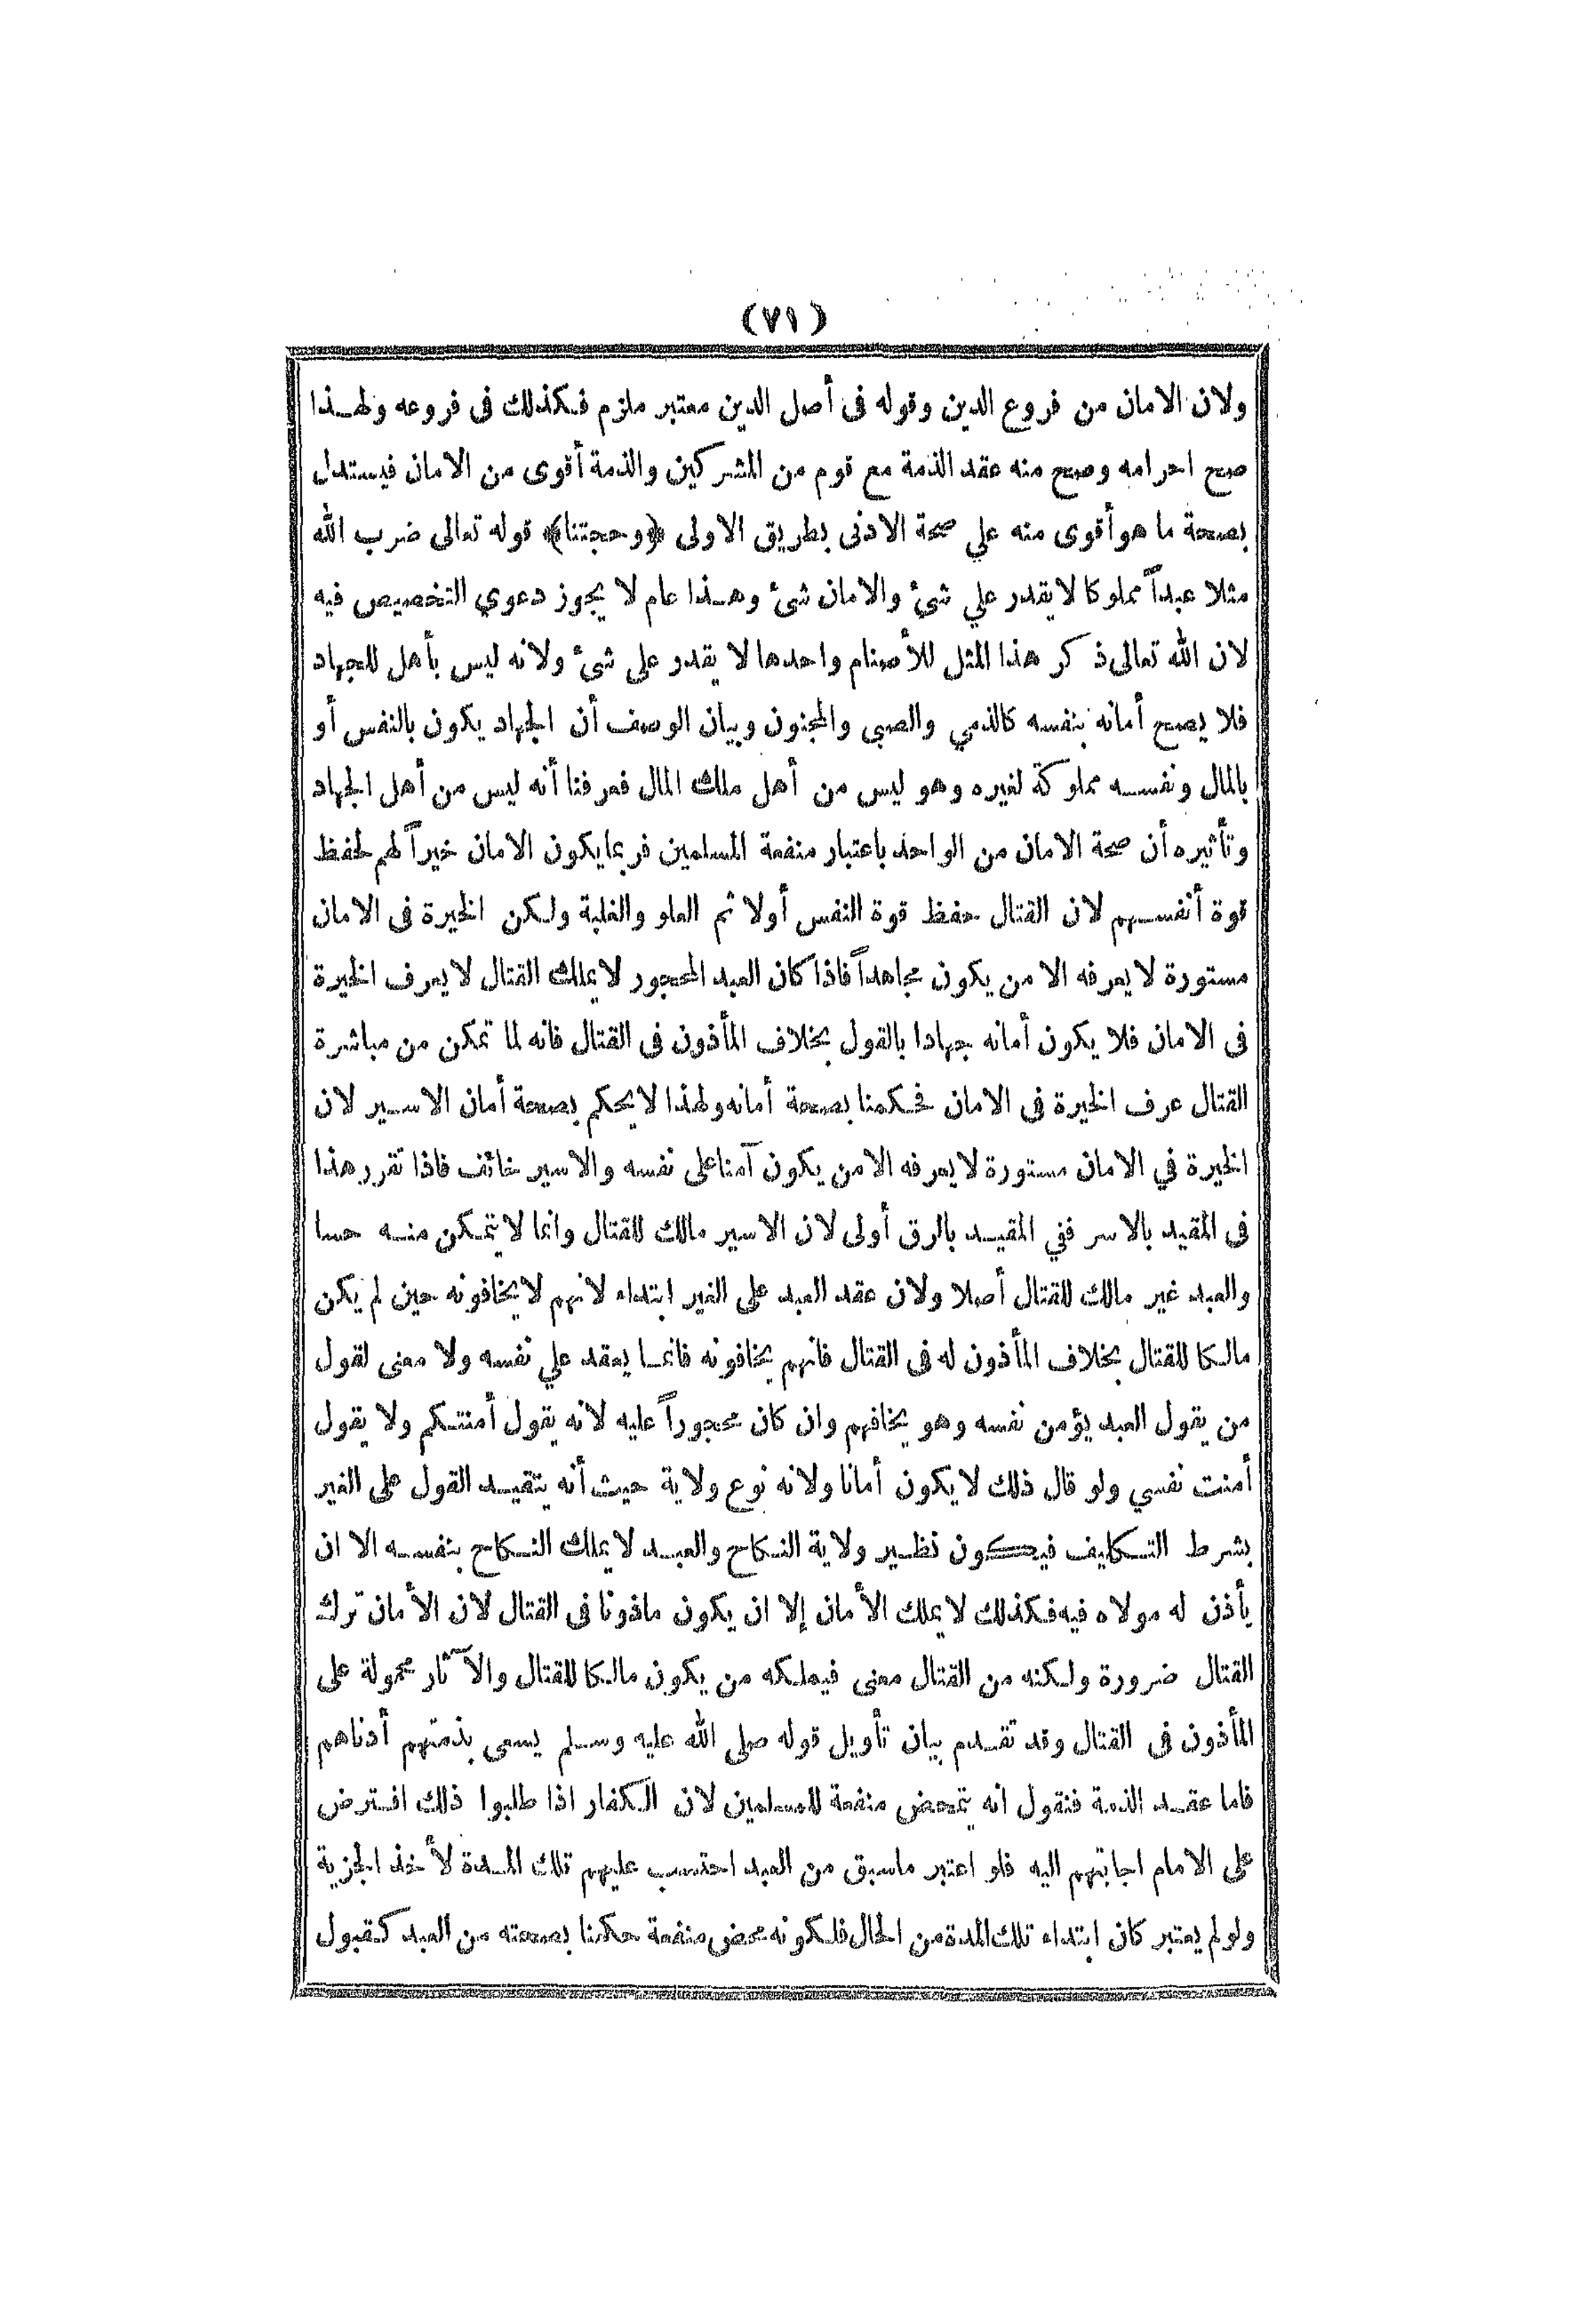 (٧١)
ولان الامان من فروع الدين وقوله فى أصل الدين معتبر ملزم فكذلك فى فروعه ولهذا
صح احرامه وصح منه عقد الذمة مع قوم من المشركين والذمة أقوى من الامان فيستدل
بصحة ما هو أقوى منه علي صحة الادنى بطريق الاولى ﴿وحجتنا﴾ قوله تعالى ضرب الله
مثلا عبداً مملوكا لا يقدر علي شئ والامان شئ وهذا عام لا يجوز دعوي التخصيص فيه
لان الله تعالى ذكر هذا المثل للأصنام واحدها لا يقدر على شئ ولانه ليس بأهل للجهاد
فلا يصح أمانه بنفسه كالذمي والصبى والمجنون وبيان الوصف أن الجهاد يكون بالنفس أو
بالمال ونفسه مملوكة لغيره وهو ليس من أهل ملك المال فعرفنا أنه ليس من أهل الجهاد
وتأثيره أن صحة الامان من الواحد باعتبار منفعة المسلمين فربما يكون الامان خيراً لهم لحفظ
قوة أنفسهم لان القتال حفظ قوة النفس أولا ثم العلو والغلبة ولكن الخيرة فى الامان
مستورة لا يعرفه الا من يكون مجاهداً فاذا كان العبد المحجور لا يملك القتال لا يعرف الخيرة
فى الامان فلا يكون أمانه جهادا بالقول بخلاف المأذون فى القتال فانه لما تمكن من مباشرة
القتال عرف الخيرة فى الامان فحكمنا بصحة أمانه ولهذا لا يحكم بصحة أمان الاسير لان
الخيرة في الامان مستورة لا يعرفه الا من يكون آمنا على نفسه والاسير خائف فاذا تقرر هذا
فى المقيد بالاسر ففي المقيد بالرق أولى لان الاسير مالك للقتال وانما لا يتمكن منه حسا
والعبد غير مالك للقتال أصلا ولان عقد العبد على الغير ابتداء لانهم لا يخافونه حين لم يكن
مالكا للقتال بخلاف المأذون له فى القتال فانهم يخافونه فانما يعقد علي نفسه ولا معنى لقول
من يقول العبد يؤمن نفسه وهو يخافهم وان كان محجوراً عليه لانه يقول أمنتكم ولا يقول
أمنت نفسي ولو قال ذلك لا يكون أمانا ولانه نوع ولاية حيث أنه يتقيد القول على الغير
بشرط التكليف فيكون نظير ولاية النكاح والعبد لا يملك النكاح بنفسه الا ان
يأذن له مولاه فيه فكذلك لا يملك الأمان إلا ان يكون ماذونا فى القتال لان الأمان ترك
القتال ضرورة ولكنه من القتال معنى فيملكه من يكون مالكا للقتال والآثار محمولة على
المأذون فى القتال وقد تقدم بيان تأويل قوله صلى الله عليه وسلم يسعى بذمتهم أدناهم
فاما عقد الذمة فنقول انه يتمحض منفعة للمسلمين لان الكفار اذا طلبوا ذلك افترض
على الامام اجابتهم اليه فلو اعتبر ماسبق من العبد احتسب عليهم تلك المدة لأخذ الجزية
ولو لم يعتبر كان ابتداء تلك المدة من الحال فلكونه محض منفعة حكمنا بصحته من العبد كقبول